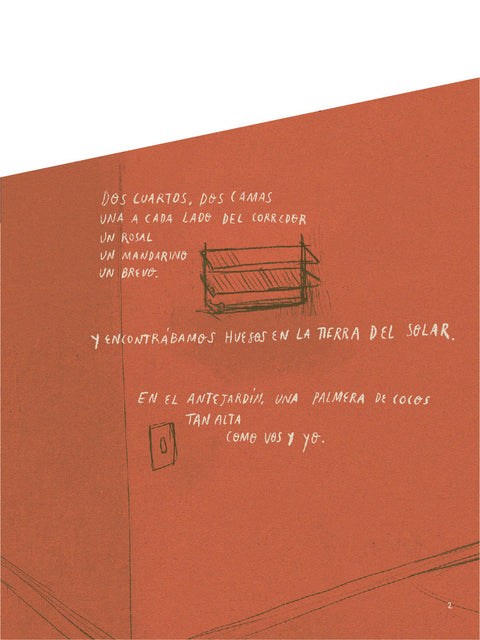 DOS CUARTOS, DOS CAMAS
UNA A CADA LADO DEL CORREDOR
UN ROSAL
UN MANDARINO
UN BREVO.
Y ENCONTRÁBAMOS HUESOS EN LA TIERRA DEL SOLAR.
EN EL ANTEJARDÍN, UNA PALMERA DE COCOS
TAN ALTA
COMO VOS Y YO.
2